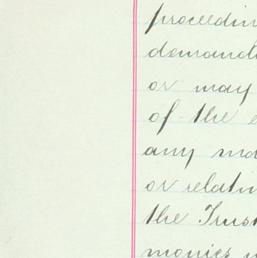 proceedin
demand
or may
of the e
any mo
or relatin
the Trus
monies